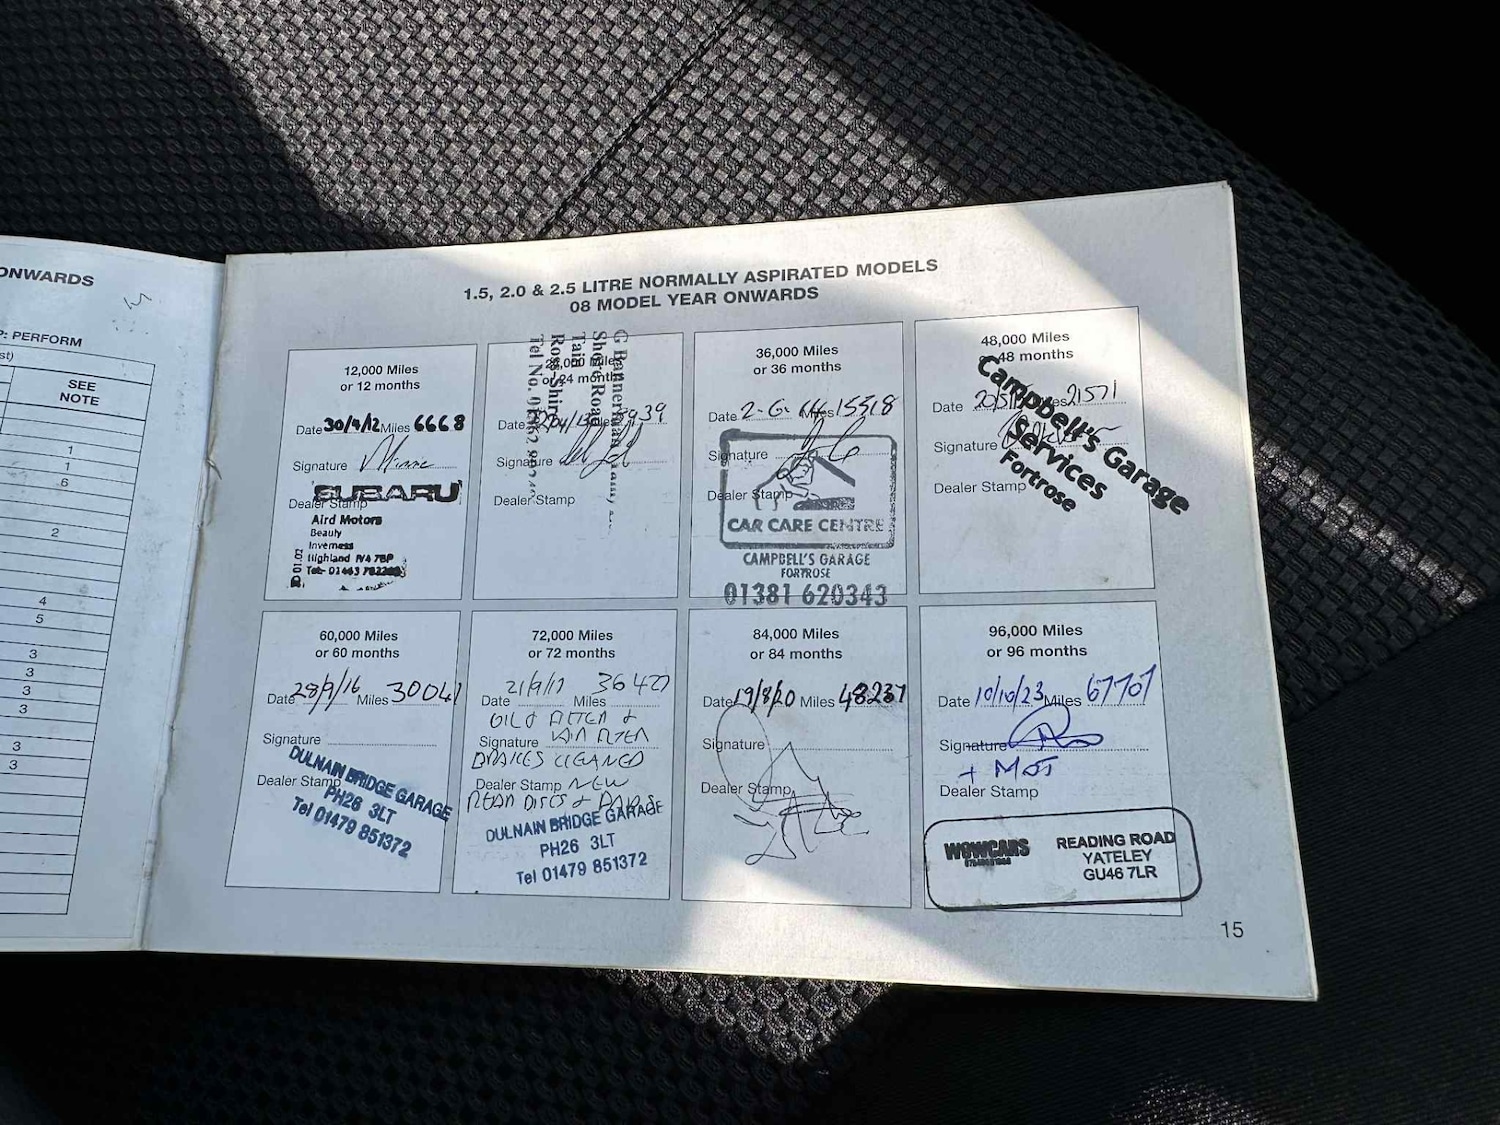 ONWARDS
P: PERFORM
st)
SEE
NOTE
1
1
6
2
4
5
3
3
3
3
3
3
1.5, 2.0 & 2.5 LITRE NORMALLY ASPIRATED MODELS
08 MODEL YEAR ONWARDS
12,000 Miles
or 12 months
Date 30/4/12 Miles 6668
Signature
Dealer Stamp
SUBARU
Aird Motors
Beauly
Inverness
Highland IV4 7BP
Tel:- 01463
miles
or 24 months
Date
Signature
Dealer Stamp
G Bannerman
Shore Road
Tain
Ross-Shire
Tel No. 01862
36,000 Miles
or 36 months
Date 2-6-14 Miles 15518
Signature
Dealer Stamp
CAR CARE CENTRE
CAMPBELL'S GARAGE
FORTROSE
01381 620343
48,000 Miles
48 months
Date 20/5/ Miles 21571
Signature
Dealer Stamp
Campbell's Garage
Services
Fortrose
60,000 Miles
or 60 months
Date 28/9/16 Miles 30041
Signature
Dealer Stamp
DULNAIN BRIDGE GARAGE
PH26 3LT
Tel 01479 851372
72,000 Miles
or 72 months
21/9/17 36427
Date Miles
OIL & FILTER &
Signature
BRAKES CLEANED
Dealer Stamp NEW
REAR DISCS & PADS
DULNAIN BRIDGE GARAGE
PH26 3LT
Tel 01479 851372
84,000 Miles
or 84 months
Date 19/8/20 Miles 48237
Signature
Dealer Stamp
96,000 Miles
or 96 months
Date 10/10/23 Miles 67707
Signature
+ MOT
Dealer Stamp
WOWCARS
READING ROAD
YATELEY
GU46 7LR
15